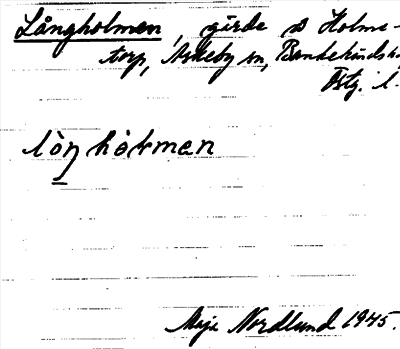 Långholmen, gärde å Holms-
torp, Askeby sn, Bankekinds h.
Östg. l.
lòŋ hòlman
Maja Nordlund 1945.